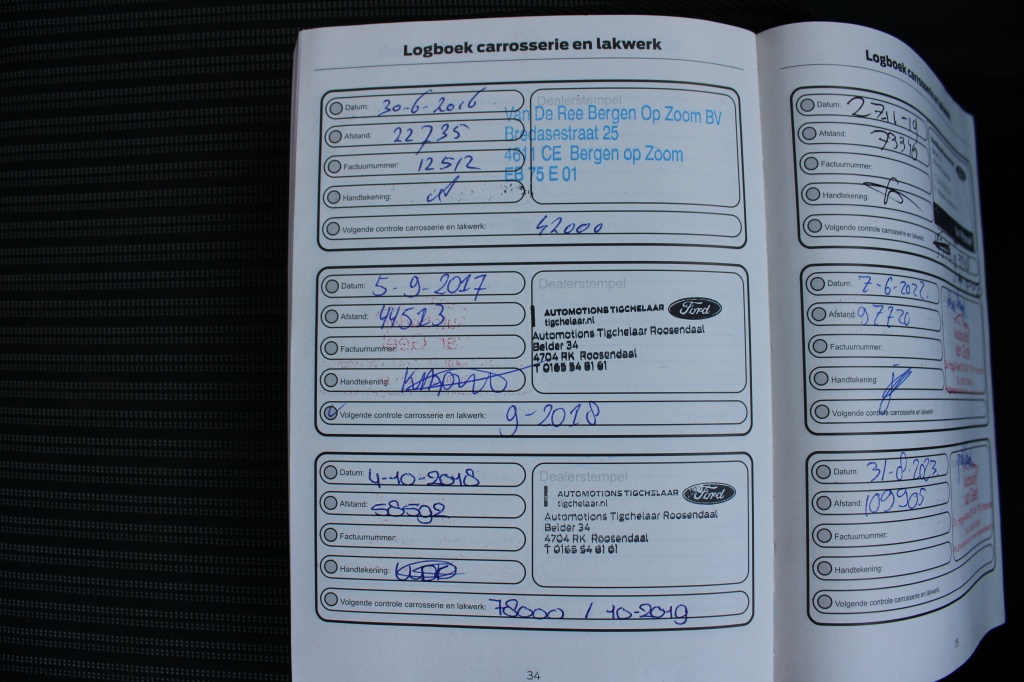 Logboek carrosserie en lakwerk
Datum: 30-6-2016
Afstand: 22735
Factuurnummer: 12512
Handtekening:
Volgende controle carrosserie en lakwerk: 42000
Dealerstempel
Van De Ree Bergen Op Zoom BV
Bredasestraat 25
4611 CE Bergen op Zoom
EB 75 E 01
Datum: 5-9-2017
Afstand: 44513
Factuurnummer:
Handtekening:
Volgende controle carrosserie en lakwerk: 9-2018
Dealerstempel
AUTOMOTIONS TIGCHELAAR Ford
tigchelaar.nl
Automotions Tigchelaar Roosendaal
Belder 34
4704 RK Roosendaal
T 0165 54 81 61
Datum: 4-10-2018
Afstand: 58592
Factuurnummer:
Handtekening:
Volgende controle carrosserie en lakwerk: 78000 / 10-2019
Dealerstempel
AUTOMOTIONS TIGCHELAAR Ford
tigchelaar.nl
Automotions Tigchelaar Roosendaal
Belder 34
4704 RK Roosendaal
T 0165 54 81 61
34
Logboek carrosserie en lakwerk
Datum: 27-11-19
Afstand:
Factuurnummer:
Handtekening:
Volgende controle carrosserie en lakwerk:
Datum: 7-6-2022
Afstand: 97720
Factuurnummer:
Handtekening:
Volgende controle carrosserie en lakwerk:
Datum: 31-8-2023
Afstand: 109905
Factuurnummer:
Handtekening:
Volgende controle carrosserie en lakwerk:
35